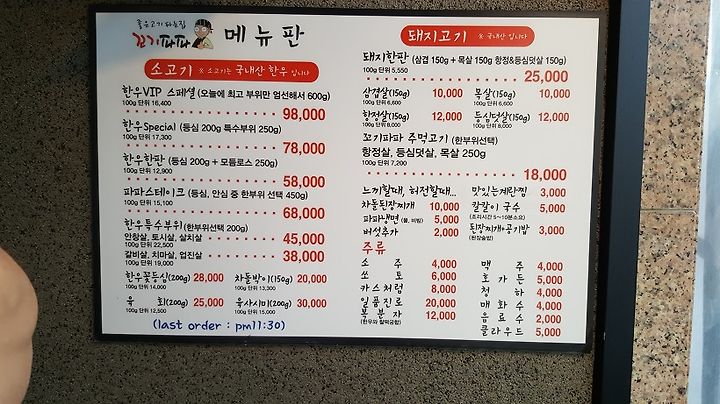 좋은고기 파는집
꼬기파파 메뉴판
소고기 ※ 소고기는 국내산 한우 입니다
한우VIP 스페셜 (오늘에 최고 부위만 엄선해서 600g)
100g 단위 16,400
98,000
한우Special (등심 200g 특수부위 250g)
100g 단위 17,300
78,000
한우한판 (등심 200g + 모듬로스 250g)
100g 단위 12,900
58,000
파파스테이크 (등심, 안심 중 한부위 선택 450g)
100g 단위 15,100
68,000
한우특수부위 (한부위선택 200g)
안창살, 토시살, 살치살 45,000
100g 단위 22,500
갈비살, 치마살, 업진살 38,000
100g 단위 19,000
한우꽃등심(200g) 28,000 차돌박이(150g) 20,000
100g 단위 14,000 100g 단위 13,300
육 회(200g) 25,000 육사시미(200g) 30,000
100g 단위 12,500 100g 단위 15,000
(last order : pm11:30)
돼지고기 ※ 국내산 입니다
돼지한판 (삼겹 150g + 목살 150g 항정&등심덧살 150g)
100g 단위 5,550
25,000
삼겹살(150g) 10,000 목살(150g) 10,000
100g 단위 6,600 100g 단위 6,600
항정살(150g) 12,000 등심덧살(150g) 12,000
100g 단위 8,000 100g 단위 8,000
꼬기파파 주먹고기 (한부위선택)
항정살, 등심덧살, 목살 250g
100g 단위 7,200
18,000
느끼할때, 허전할때... 맛있는계란찜 3,000
차돌된장찌개 10,000 칼칼이 국수 5,000
(조리시간 5~10분소요)
파파냉면 (물, 비빔) 5,000
버섯추가 2,000 된장찌개+공기밥 3,000
(된장술밥)
주류
소 주 4,000 맥 주 4,000
쏘 토 6,000 호 가 든 5,000
카스처럼 8,000 청 하 4,000
일품진로 20,000 매 화 수 4,000
복 분 자 12,000 음 료 수 2,000
(한우와 찰떡궁합) 클라우드 5,000